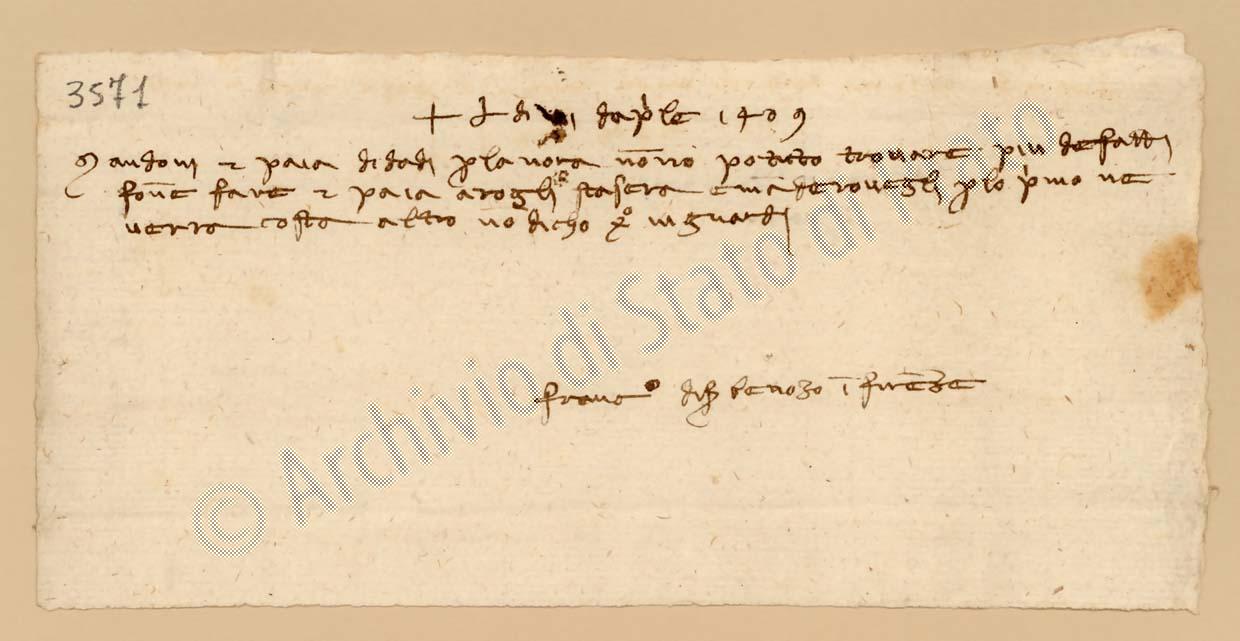 3571
+ A di vi daprle 1409
Mandovi 2 paia didadi pla nora nonno potuto trovare piu defatti
fone fare 2 paia arogli stasera e manderovegli plo pmo ve
verra costa altro no dicho xo vi guardi
franco di s benozo i firenze
© Archivio di Stato di Prato